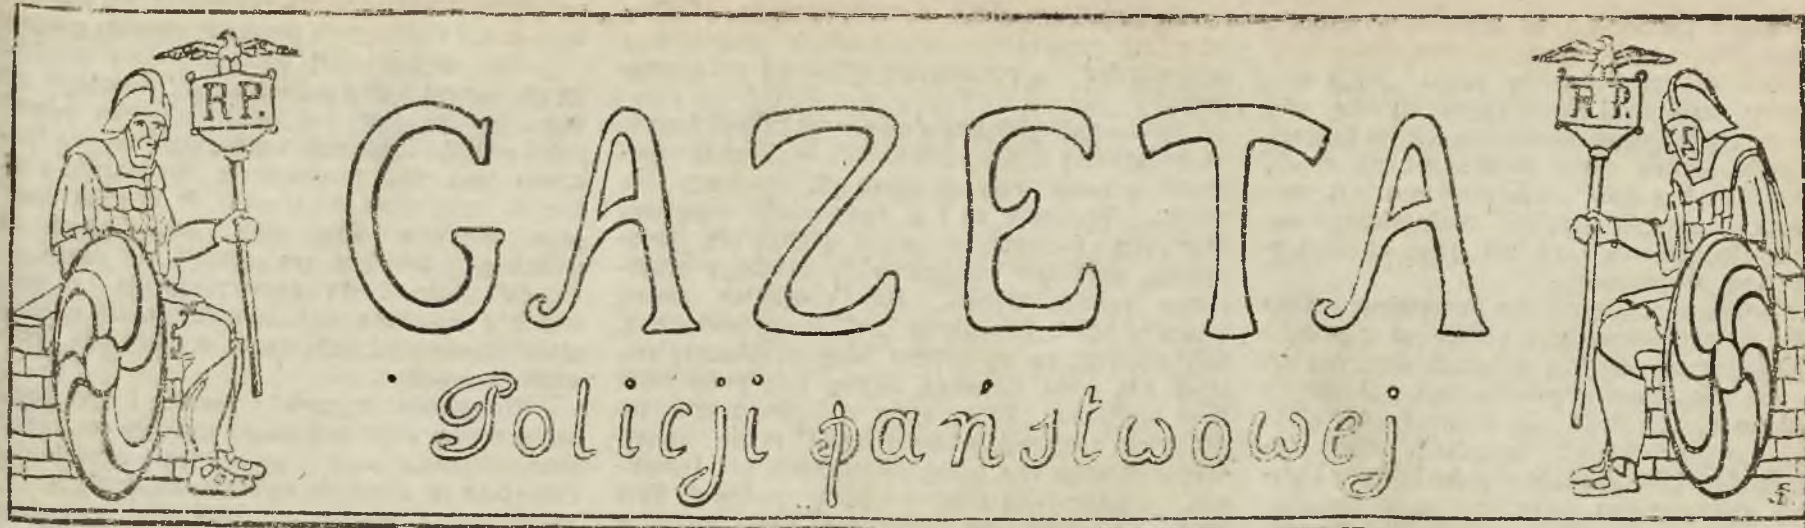 R P.
R P.
GAZETA
Policji państwowej